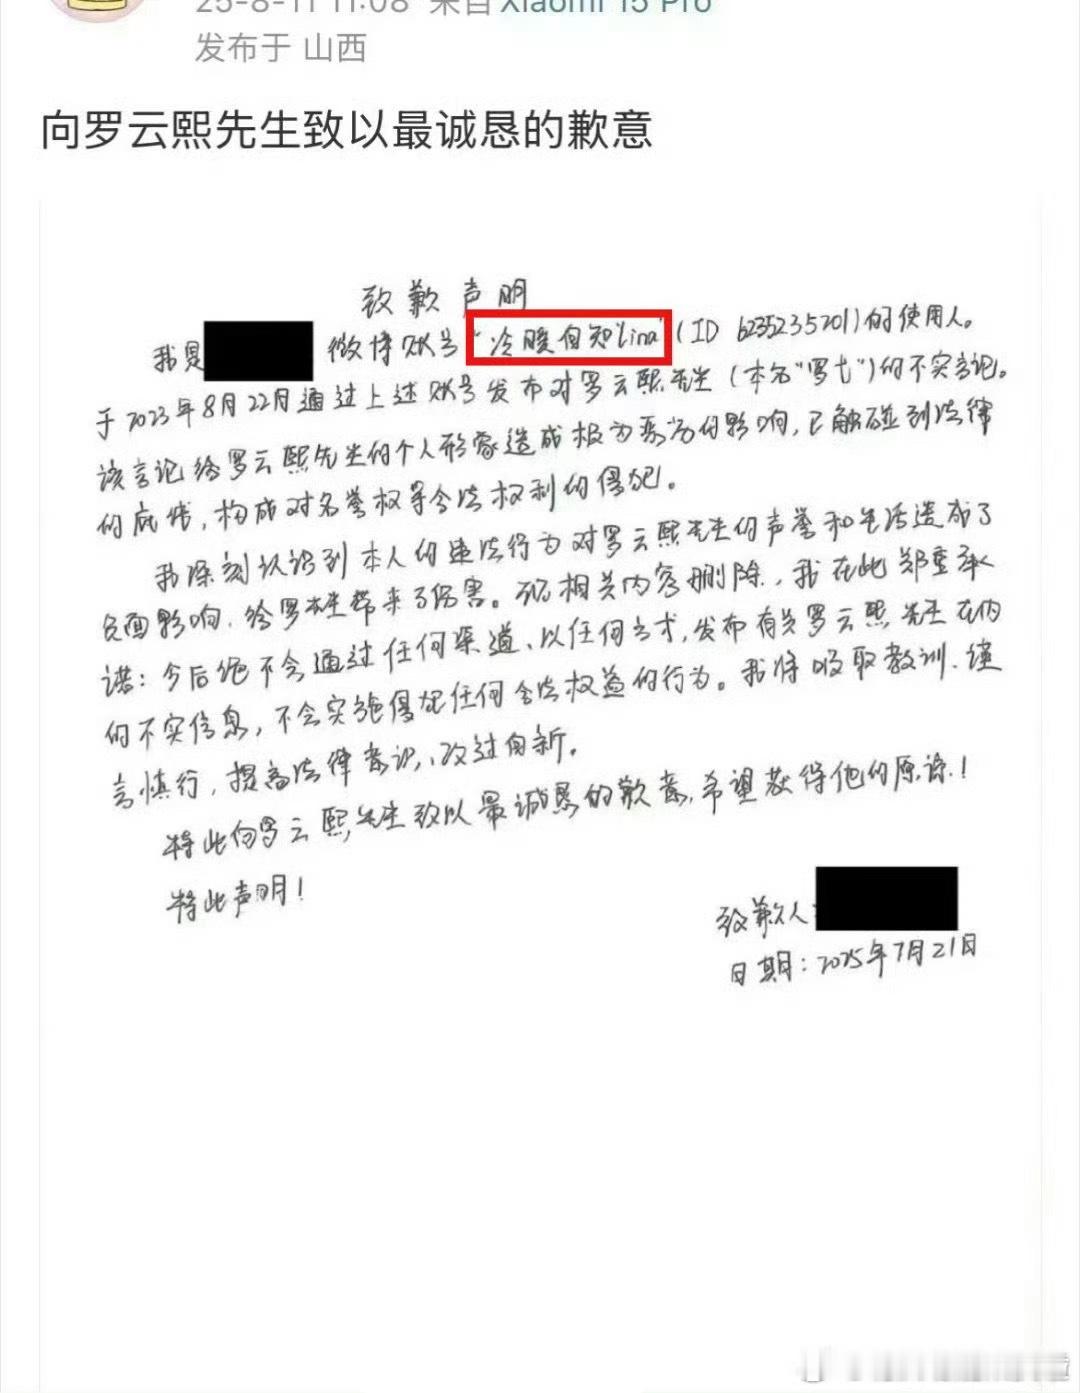 25-8-11 11:08 来自 Xiaomi 15 Pro
发布于 山西
向罗云熙先生致以最诚恳的歉意
致歉声明
我是 微博账号“冷暖自知Lina”(ID 6235235201)的使用人。
于2023年8月22月通过上述账号发布对罗云熙先生(本名“罗弋”)的不实言论。
该言论给罗云熙先生的个人形象造成极为恶劣的影响,已触碰到法律
的底线,构成对名誉权等合法权利的侵犯。
我深刻认识到本人的违法行为对罗云熙先生的声誉和生活造成了
负面影响,给罗先生带来了伤害。现相关内容删除,我在此郑重承
诺:今后绝不会通过任何渠道、以任何方式,发布有关罗云熙先生在内
的不实信息,不会实施侵犯任何合法权益的行为。我将吸取教训、谨
言慎行,提高法律意识、改过自新。
特此向罗云熙先生致以最诚恳的歉意,希望获得他的原谅!
特此声明!
致歉人:
日期:2025年7月21日